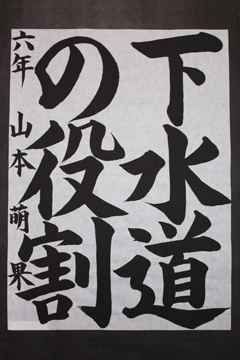 下水道
の役割
六年 山本 萌果